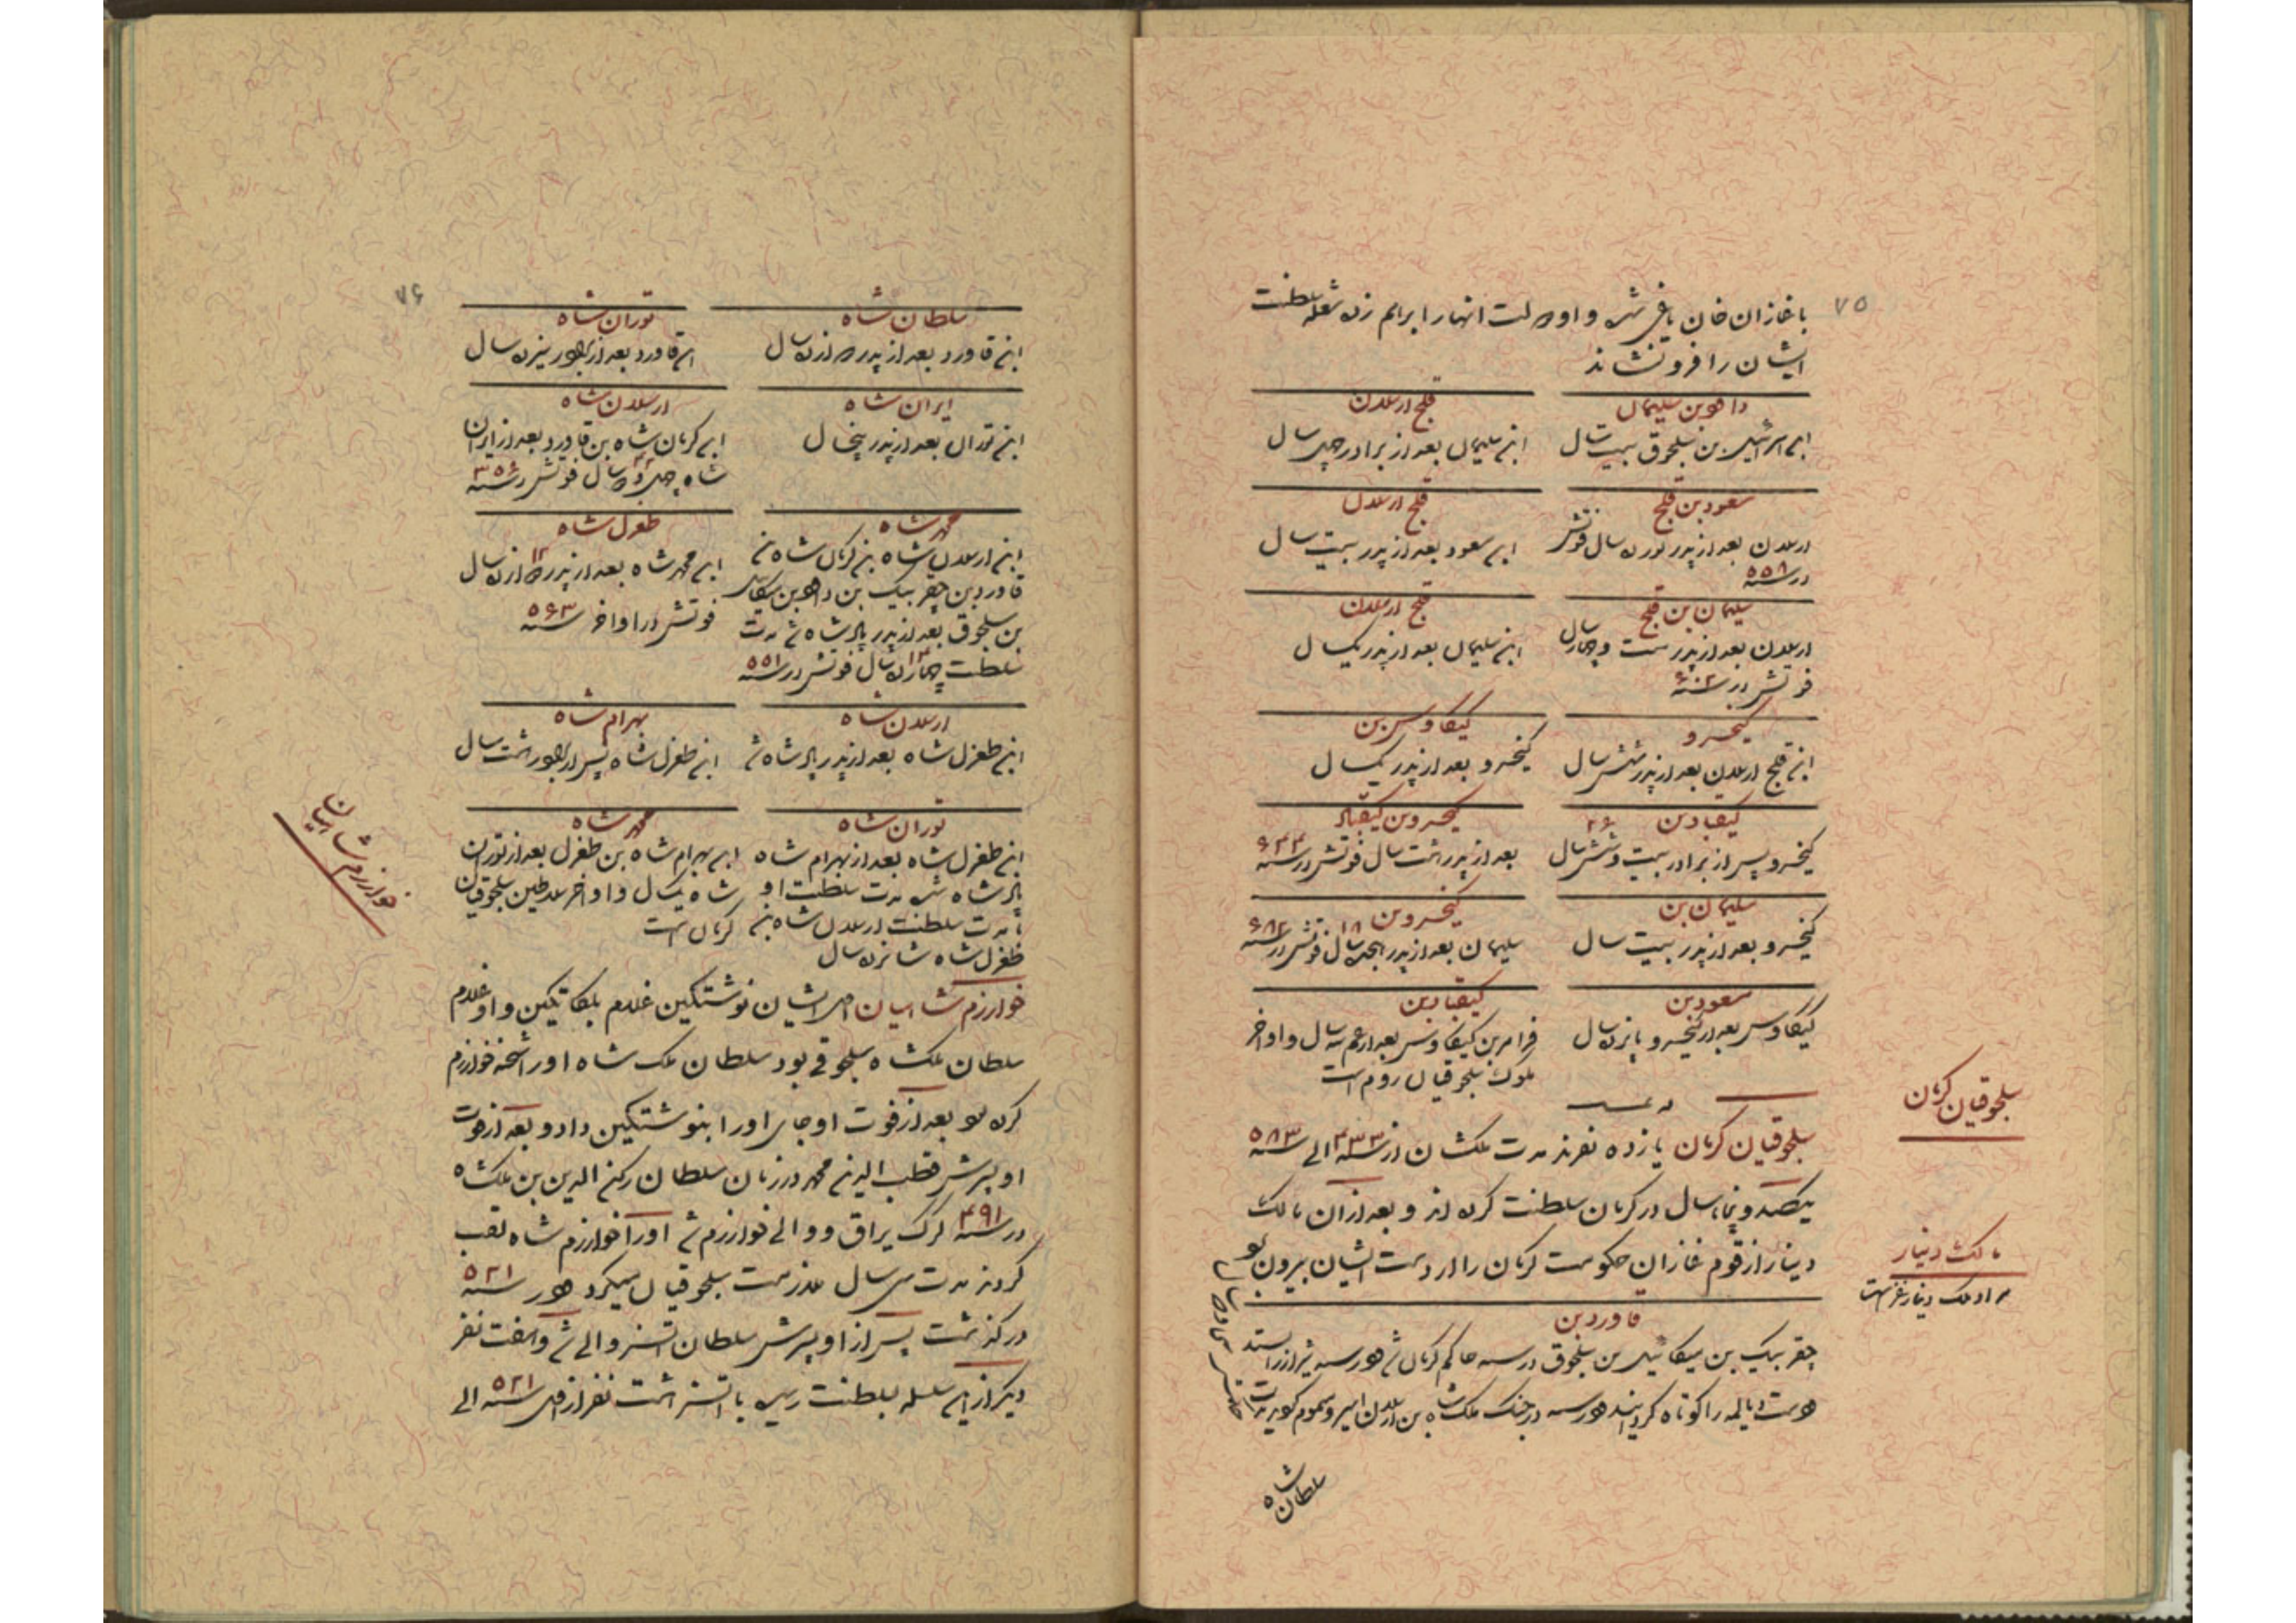 ۷۵
با غازان خان یاغی شد و او دولت انها را برهم زده شعله سلطنت
ایشان را فرو نشاند
داود بن سلیمان
ابن اسرائیل بن سلجوق بیست سال
قلج ارسلان
ابن سلیمان بعد از برادر چهل سال
مسعود بن قلج
ارسلان بعد از پدر نوزده سال فوتش
در سنه ۵۵۸
قلج ارسلان
ابن مسعود بعد از پدر بیست سال
سلیمان بن قلج
ارسلان بعد از پدر بیست و چهار سال
فوتش در سنه ۶۰۲
قلج ارسلان
ابن سلیمان بعد از پدر یکسال
کیخسرو
ابن قلج ارسلان بعد از پدر شش سال
کیکاوس بن
کیخسرو بعد از پدر یکسال
کیقباد بن
کیخسرو پس از برادر بیست و شش سال ۲۶
کیخسرو بن کیقباد
بعد از پدر هشت سال فوتش در سنه ۶۴۴
سلیمان بن
کیخسرو بعد از پدر بیست سال
کیخسرو بن
سلیمان بعد از پدر هجده سال ۱۸ فوتش در سنه ۶۸۲
مسعود بن
کیکاوس بعد از کیخسرو پانزده سال
کیقباد بن
فرامرز بن کیکاوس بعد از عم سه سال و اواخر
ملوک سلجوقیان روم است
سلجوقیان کرمان
سلجوقیان کرمان یازده نفرند مدت ملکشان از سنه ۴۳۳ الی سنه ۵۸۳
یکصد و پنجاه سال در کرمان سلطنت کرده اند و بعد از آن مالک
مالک دینار
مراد ملک دینار غز است
دینار از قوم غازان حکومت کرمان را از دست ایشان بیرون
قاورد بن
چقر بیک بن میکائیل بن سلجوق در سنه حاکم کرمان شد و در سنه شیراز را ستد
و دست دیالمه را کوتاه گردانید و در سنه در جنگ ملک شاه بن ارسلان اسیر و مسموم گردید
سلطان شاه
۷۶
سلطان شاه
ابن قاورد بعد از پدر دوازده سال
توران شاه
ابن قاورد بعد از برادر سیزده سال
ایران شاه
ابن توران بعد از پدر پنج سال
ارسلان شاه
ابن کرمان شاه بن قاورد بعد از ایران
شاه چهل و دو سال ۴۲ فوتش در سنه
محمد شاه
ابن ارسلان شاه بن کرمان شاه بن
قاورد بن چقر بیک بن داود بن میکائیل
بن سلجوق بعد از پدر پادشاه شد مدت
سلطنت چهارده سال ۱۴ فوتش در سنه ۵۵۱
طغرل شاه
ابن محمد شاه بعد از پدر دوازده سال ۱۲
فوتش در اواخر سنه ۵۶۳
ارسلان شاه
ابن طغرل شاه بعد از پدر پادشاه شد
بهرام شاه
ابن طغرل شاه پس از برادر هشت سال
توران شاه
ابن طغرل شاه بعد از بهرام شاه
پادشاه شد مدت سلطنت او
با مدت سلطنت ارسلان شاه بن
طغرل شاه شانزده سال
محمد شاه
ابن بهرام شاه بن طغرل بعد از توران
شاه یکسال و اواخر سلاطین سلجوقیان
کرمان است
خوارزم شاهیان
خوارزم شاهیان اصل ایشان نوشتکین غلام بلکاتکین و او غلام
سلطان ملکشاه سلجوقی بود سلطان ملک شاه او را شحنه خوارزم
کرده بود بعد از فوت او جای او را بنوشتکین داد و بعد از فوت
او پسرش قطب الدین محمد در زمان سلطان رکن الدین بن ملکشاه
در سنه ۴۹۱ کرک یراق و والی خوارزم شد او را خوارزم شاه لقب
کردند مدت سی سال ملازمت سلجوقیان میکرد و در سنه ۵۲۱
در گذشت پس از او پسرش سلطان اتسز والی شد و هفت نفر
دیگر از این سلسله بسلطنت رسید با اتسز هشت نفر از سنه ۵۲۱ الی